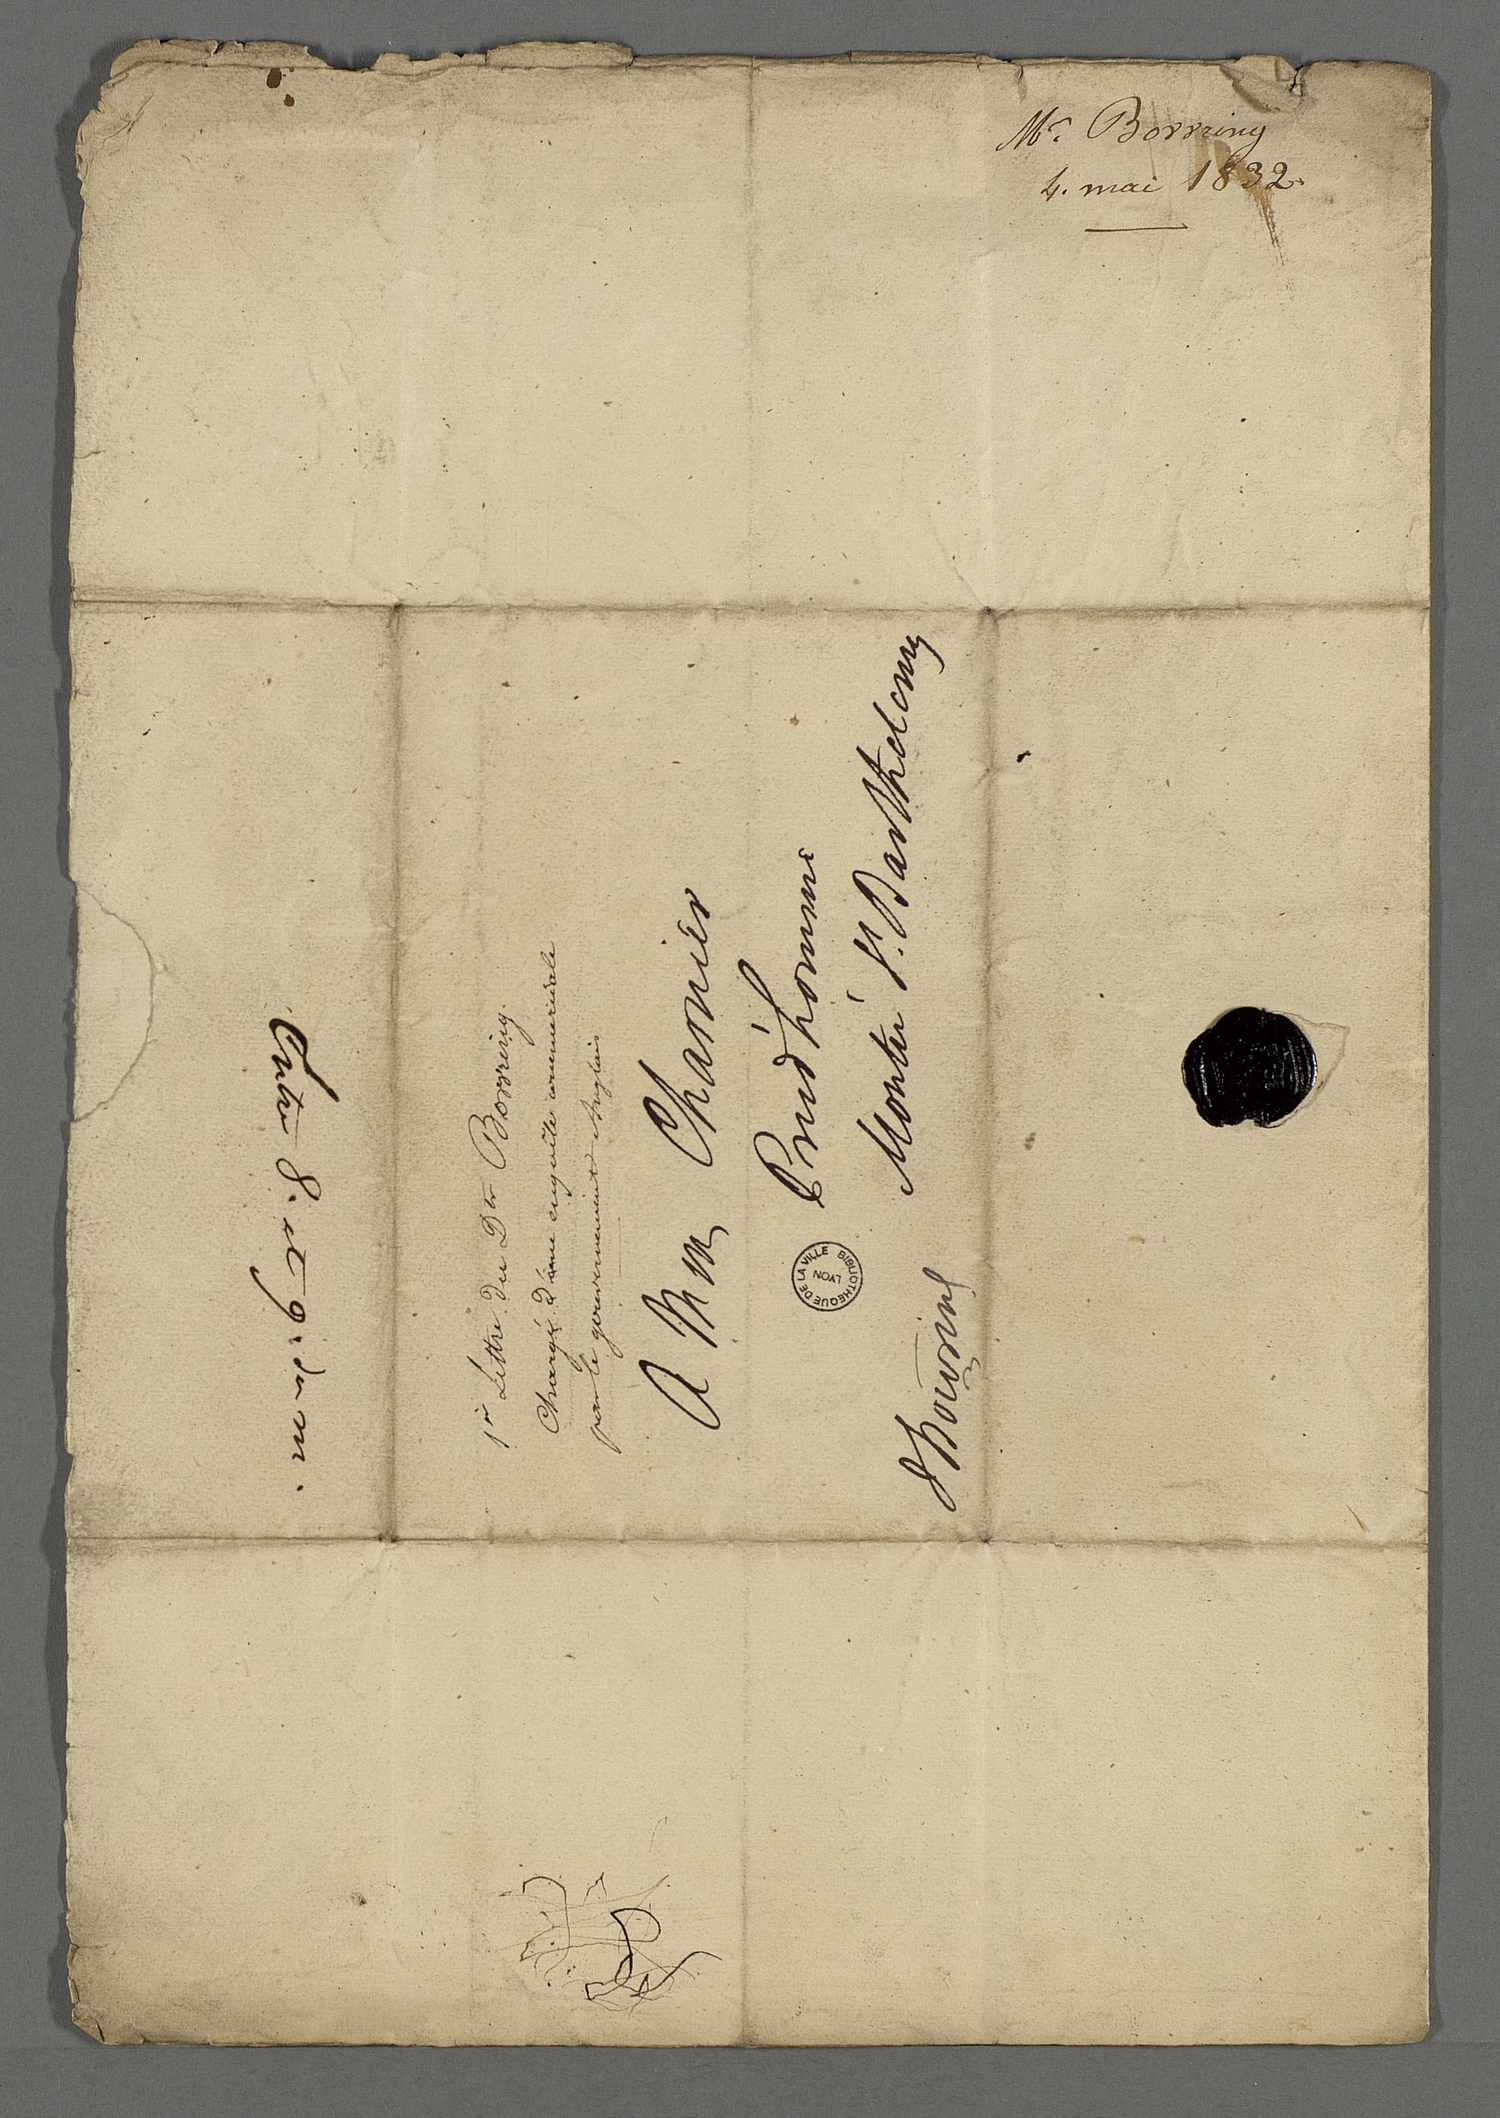 Mr. Bowring
4. mai 1832.
1re Lettre du Dtr Bowring
Chargé d'une enquête commerciale
par le gouvernement Anglais
A Mr Charnier
Prud'homme
Montée St. Barthelemy
J Bowring
BIBLIOTHEQUE DE LA VILLE
LYON
Entre 8. et 9. du m.